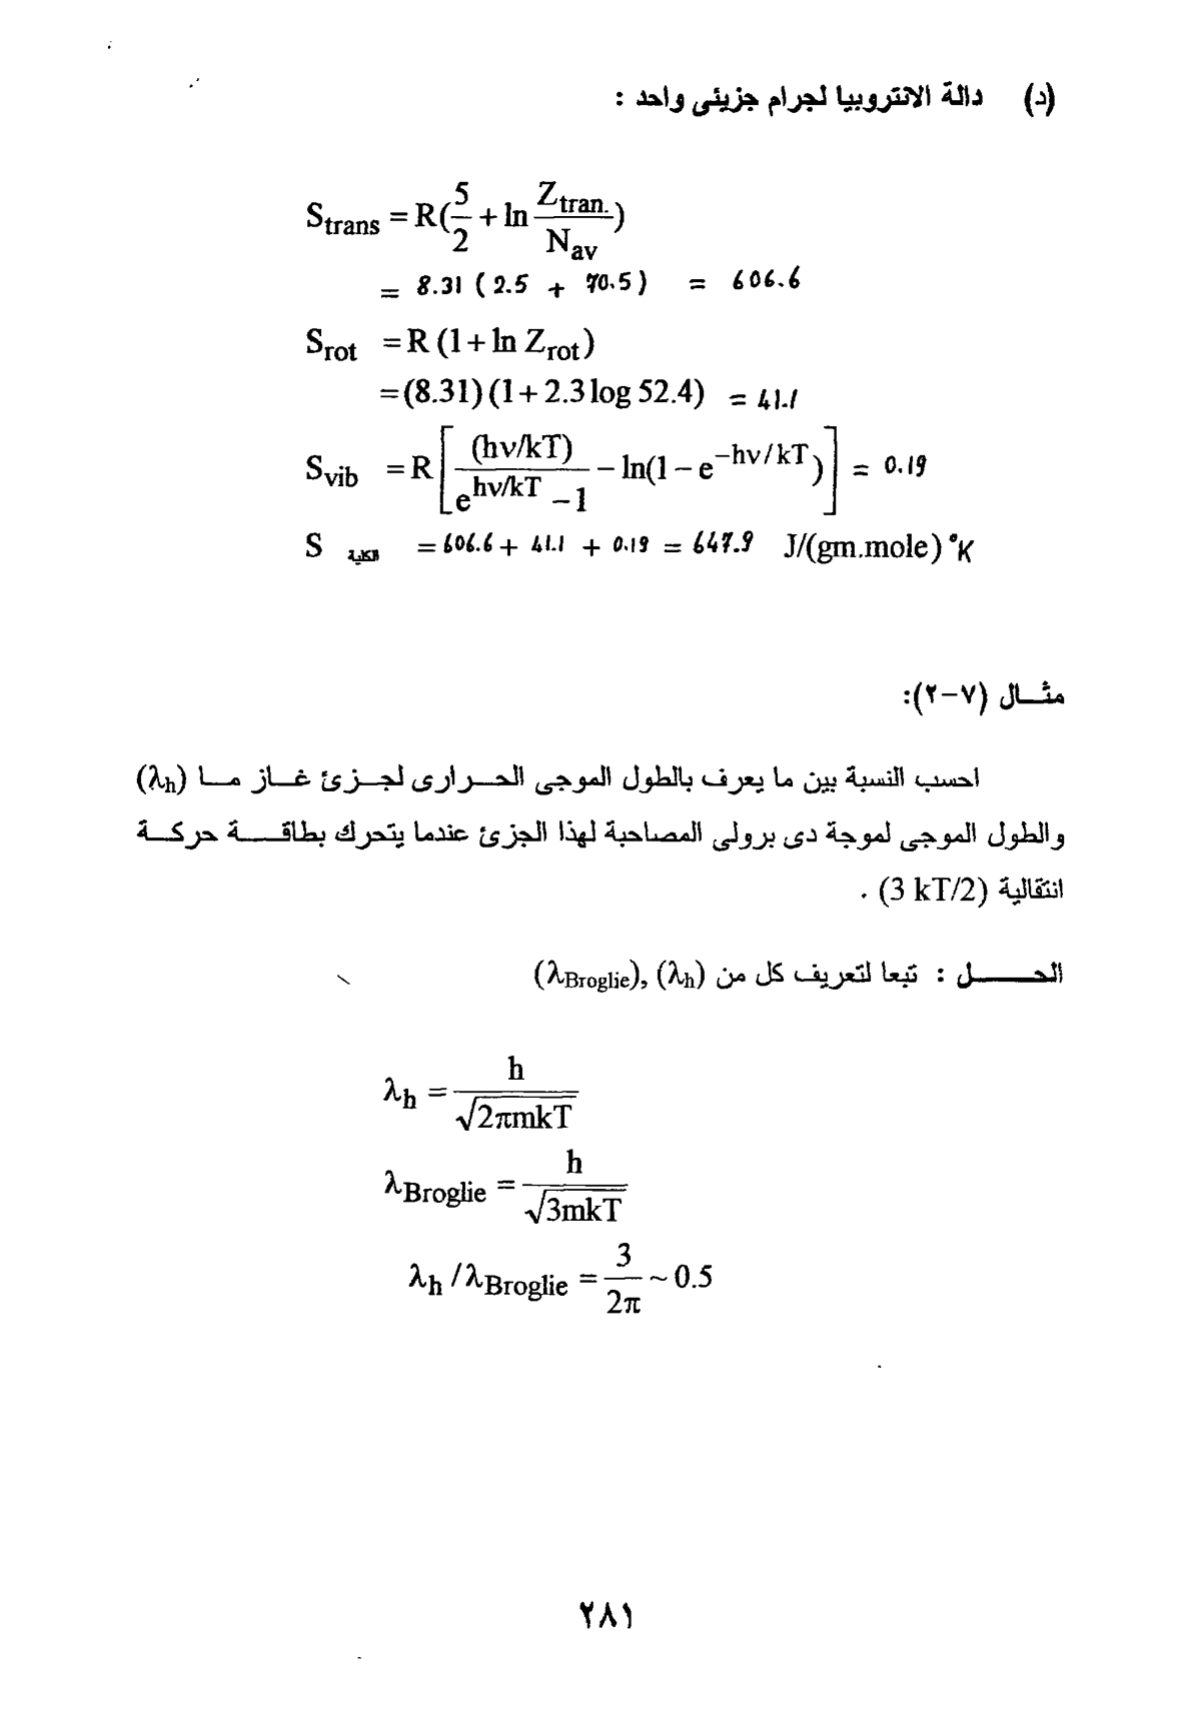 (د) دالة الانتروبيا لجرام جزيئى واحد :
S_trans = R(5/2 + ln Z_tran./N_av)
= 8.31 ( 2.5 + 70.5 ) = 606.6
S_rot = R (1 + ln Z_rot)
= (8.31) (1 + 2.3 log 52.4) = 41.1
S_vib = R [ (hν/kT) / (e^{hν/kT} – 1) – ln(1 – e^{–hν/kT}) ] = 0.19
S الكلية = 606.6 + 41.1 + 0.19 = 647.9 J/(gm.mole) °K
مثـــال (٧-٢):
احسب النسبة بين ما يعرف بالطول الموجى الحـرارى لجـزئ غـاز مـا (λh)
والطول الموجى لموجة دى برولى المصاحبة لهذا الجزئ عندما يتحرك بطاقـــة حركـة
انتقالية (3 kT/2) .
الحـــــــل : تبعا لتعريف كل من (λh) ,(λBroglie)
λ_h = h / √(2πmkT)
λ_Broglie = h / √(3mkT)
λ_h / λ_Broglie = 3/2π ~ 0.5
٢٨١